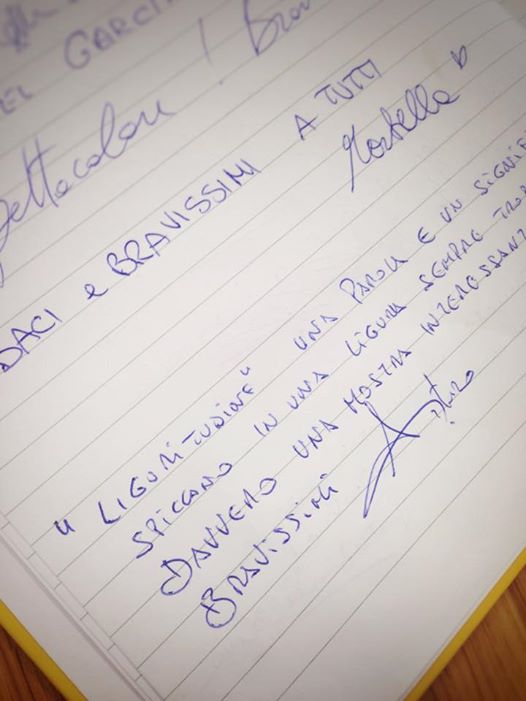 GARCI
Spettacolare! Brav
DACI e BRAVISSIMI A TUTTI
"LIGURITUDINE" UNA PAROLA E UN SIGNIF
SPICCANO IN UNA LIGURIA SEMPRE TROP
DAVVERO UNA MOSTRA INTERESSANT
BRAVISSIMI